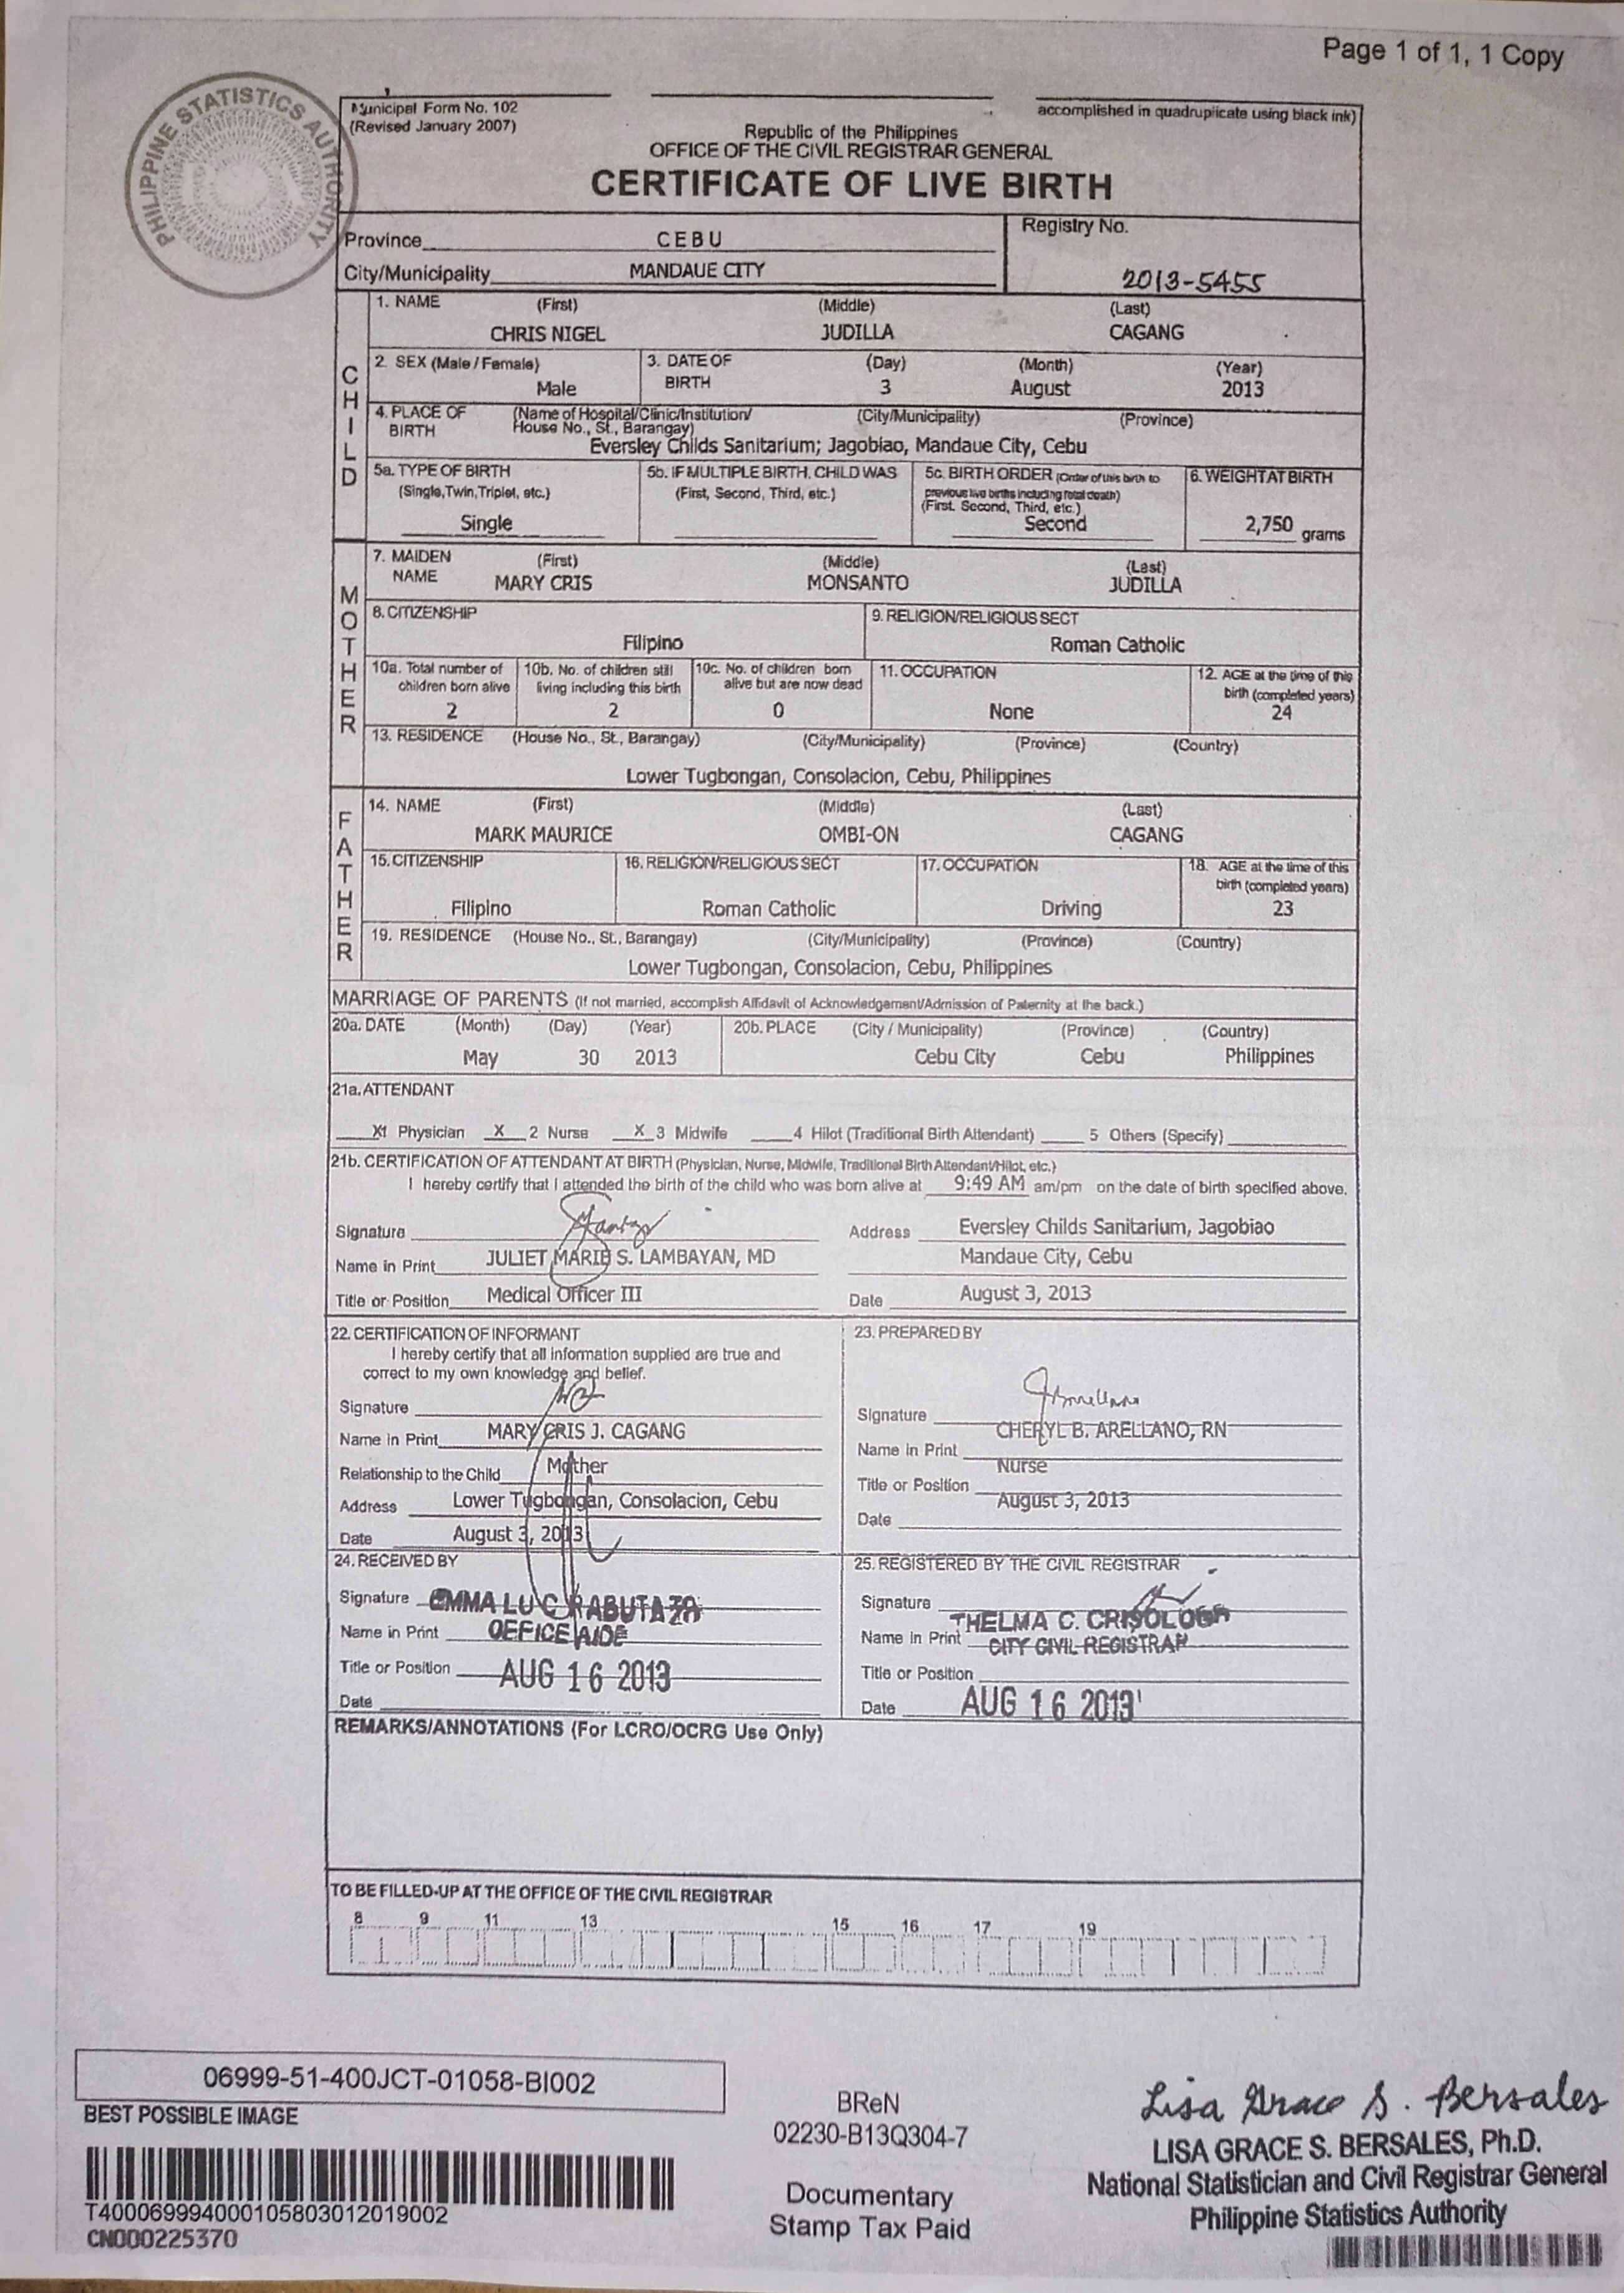 Page 1 of 1, 1 Copy
PHILIPPINE STATISTICS AUTHORITY
Municipal Form No. 102
(Revised January 2007)
accomplished in quadruplicate using black ink)
Republic of the Philippines
OFFICE OF THE CIVIL REGISTRAR GENERAL
CERTIFICATE OF LIVE BIRTH
Province CEBU
Registry No.
City/Municipality MANDAUE CITY
2013-5455
CHILD
1. NAME (First) (Middle) (Last)
CHRIS NIGEL JUDILLA CAGANG
2. SEX (Male / Female) 3. DATE OF BIRTH (Day) (Month) (Year)
Male 3 August 2013
4. PLACE OF BIRTH (Name of Hospital/Clinic/Institution/ House No., St., Barangay) (City/Municipality) (Province)
Eversley Childs Sanitarium; Jagobiao, Mandaue City, Cebu
5a. TYPE OF BIRTH (Single,Twin,Triplet, etc.) 5b. IF MULTIPLE BIRTH, CHILD WAS (First, Second, Third, etc.) 5c. BIRTH ORDER (Order of this birth to previous live births including fetal death) (First, Second, Third, etc.) 6. WEIGHT AT BIRTH
Single Second 2,750 grams
MOTHER
7. MAIDEN NAME (First) (Middle) (Last)
MARY CRIS MONSANTO JUDILLA
8. CITIZENSHIP 9. RELIGION/RELIGIOUS SECT
Filipino Roman Catholic
10a. Total number of children born alive 10b. No. of children still living including this birth 10c. No. of children born alive but are now dead 11. OCCUPATION 12. AGE at the time of this birth (completed years)
2 2 0 None 24
13. RESIDENCE (House No., St., Barangay) (City/Municipality) (Province) (Country)
Lower Tugbongan, Consolacion, Cebu, Philippines
FATHER
14. NAME (First) (Middle) (Last)
MARK MAURICE OMBI-ON CAGANG
15. CITIZENSHIP 16. RELIGION/RELIGIOUS SECT 17. OCCUPATION 18. AGE at the time of this birth (completed years)
Filipino Roman Catholic Driving 23
19. RESIDENCE (House No., St., Barangay) (City/Municipality) (Province) (Country)
Lower Tugbongan, Consolacion, Cebu, Philippines
MARRIAGE OF PARENTS (If not married, accomplish Affidavit of Acknowledgement/Admission of Paternity at the back.)
20a. DATE (Month) (Day) (Year) 20b. PLACE (City / Municipality) (Province) (Country)
May 30 2013 Cebu City Cebu Philippines
21a. ATTENDANT
X1 Physician X 2 Nurse X 3 Midwife 4 Hilot (Traditional Birth Attendant) 5 Others (Specify)
21b. CERTIFICATION OF ATTENDANT AT BIRTH (Physician, Nurse, Midwife, Traditional Birth Attendant/Hilot, etc.)
I hereby certify that I attended the birth of the child who was born alive at 9:49 AM am/pm on the date of birth specified above.
Signature Address Eversley Childs Sanitarium, Jagobiao
Name in Print JULIET MARIE S. LAMBAYAN, MD Mandaue City, Cebu
Title or Position Medical Officer III Date August 3, 2013
22. CERTIFICATION OF INFORMANT
I hereby certify that all information supplied are true and
correct to my own knowledge and belief.
Signature
Name in Print MARY CRIS J. CAGANG
Relationship to the Child Mother
Address Lower Tugbongan, Consolacion, Cebu
Date August 3, 2013
23. PREPARED BY
Signature
CHERYL B. ARELLANO, RN
Name in Print
Nurse
Title or Position
August 3, 2013
Date
24. RECEIVED BY
Signature EMMA LU C.
Name in Print OFFICE AIDE
Title or Position AUG 16 2013
Date
25. REGISTERED BY THE CIVIL REGISTRAR
Signature
THELMA C. CRISOLOGO
Name in Print CITY CIVIL REGISTRAR
Title or Position
Date AUG 16 2013
REMARKS/ANNOTATIONS (For LCRO/OCRG Use Only)
TO BE FILLED-UP AT THE OFFICE OF THE CIVIL REGISTRAR
8 9 11 13 15 16 17 19
06999-51-400JCT-01058-BI002
BEST POSSIBLE IMAGE
T400069994000105803012019002
CN000225370
BReN
02230-B13Q304-7
Documentary
Stamp Tax Paid
Lisa Grace S. Bersales
LISA GRACE S. BERSALES, Ph.D.
National Statistician and Civil Registrar General
Philippine Statistics Authority